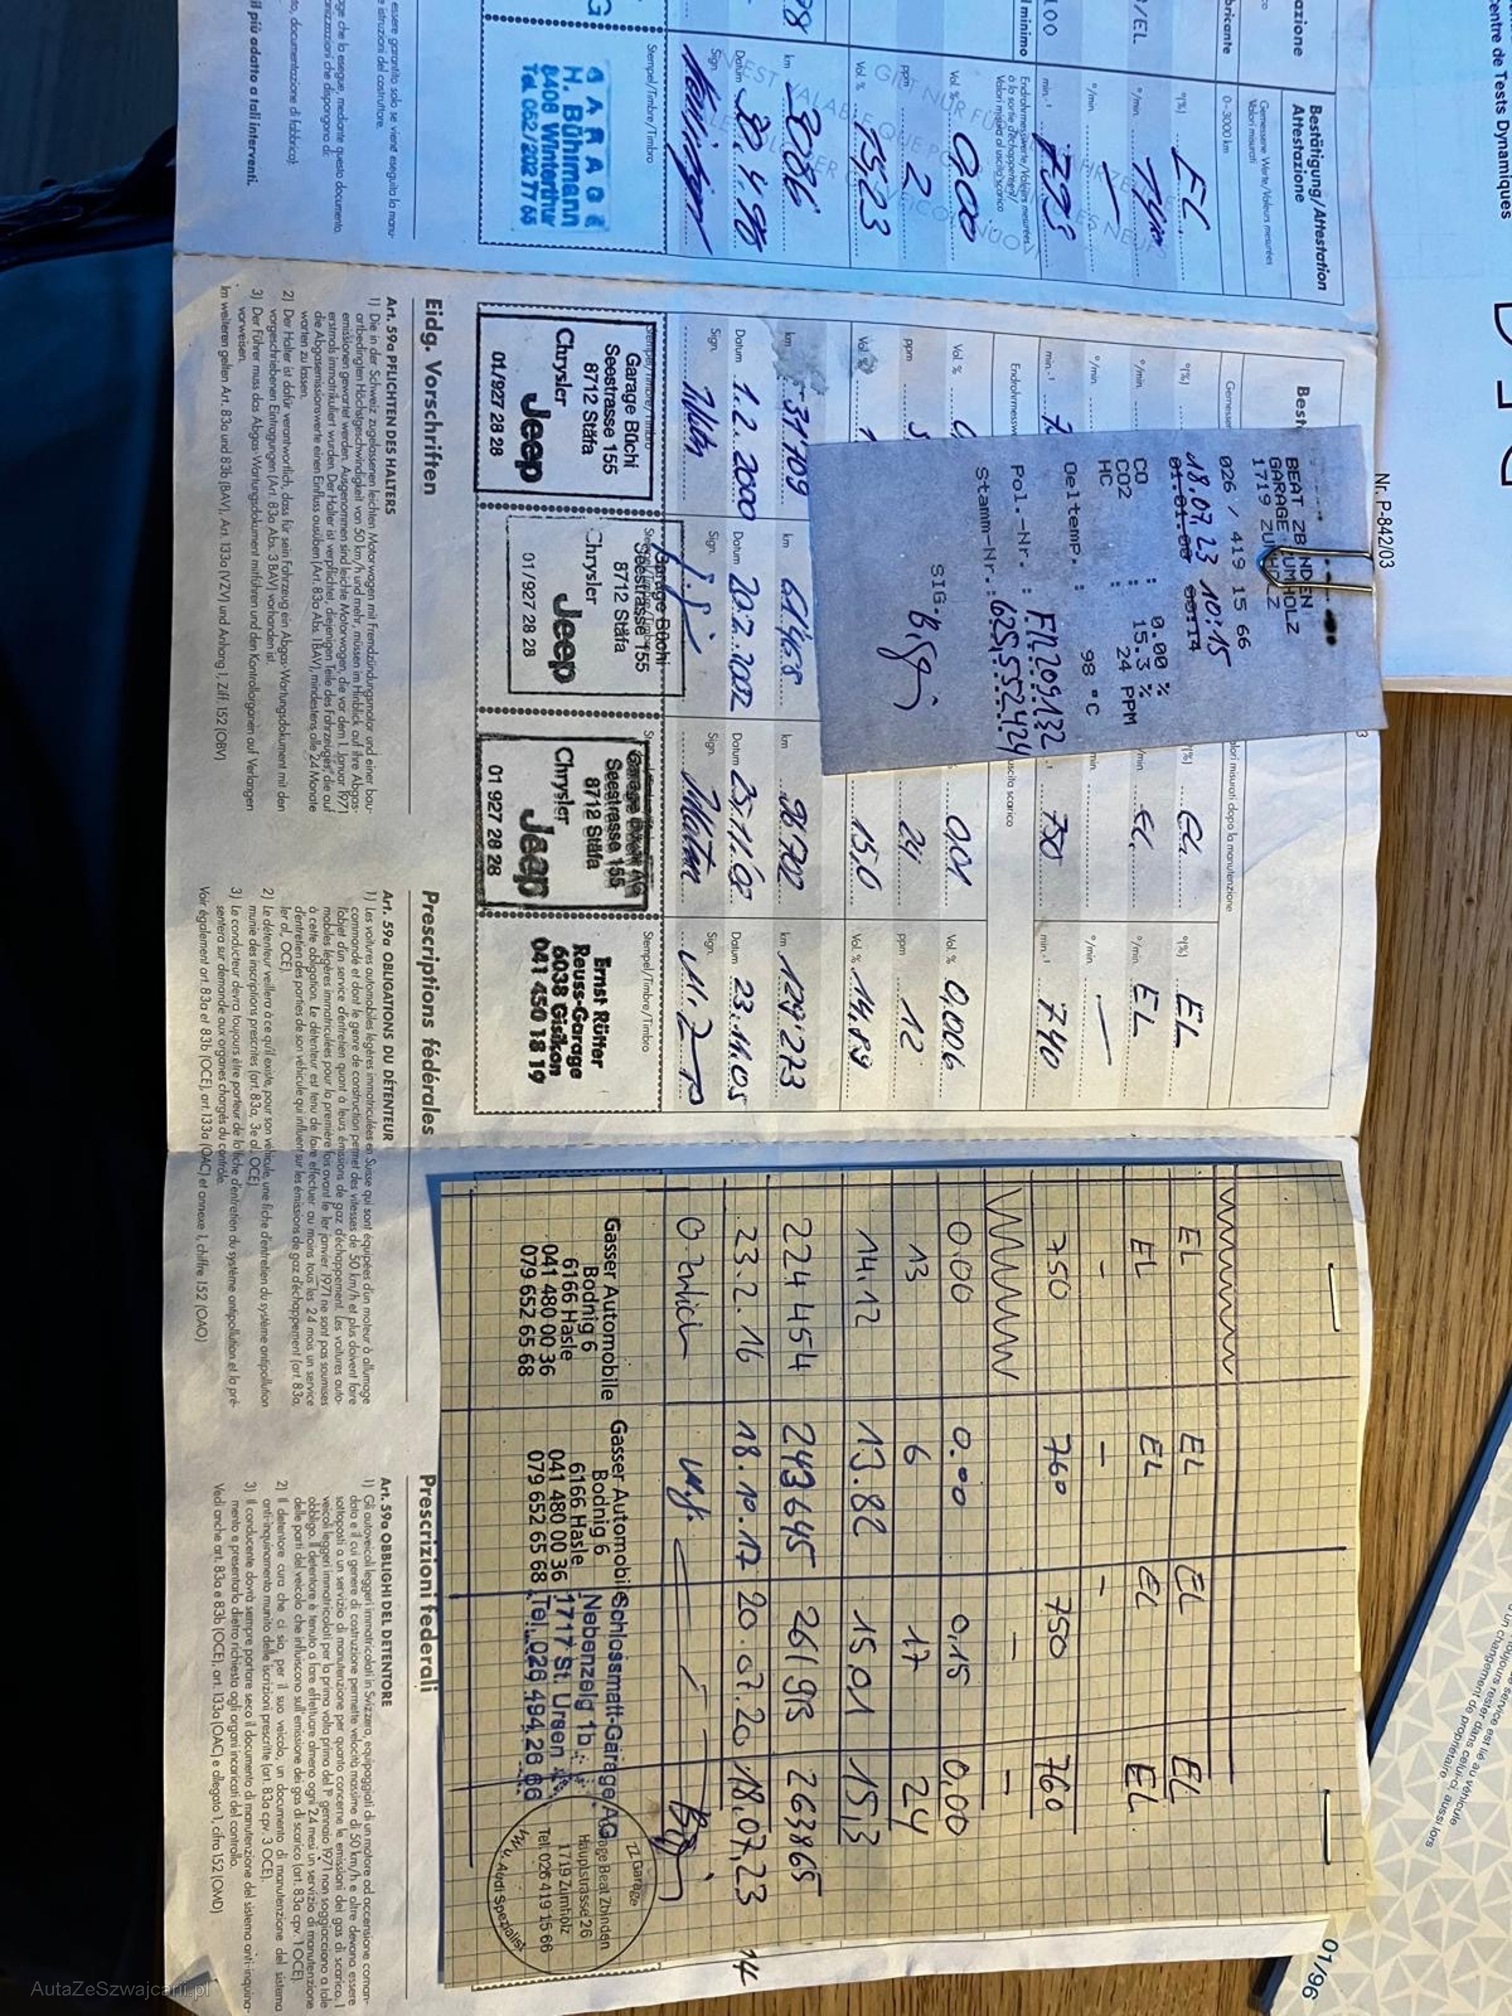 entre de Tests Dynamiques
Nr. P-842/03
azione
bricante
/EL
100
l minimo
Bestätigung/Attestation
Attestazione
Gemessene Werte/Valeurs mesurées
Valori misurati
0-3000 km
°(%) EL.
°/min.
°/min. —
min.⁻¹
Endrohrmesswerte/Valeurs mesurées
à la sortie d'échappement/
Valori misurati al uscita scarico
Vol. % 0,00
ppm 2
Vol. % 15,23
km 2086
Datum 30.4.98
Sign.
Stempel/Timbre/Timbro
GARAGE
H. Bührmann
8408 Winterthur
Tel. 052/202 77 65
BEAT ZBINDEN
GARAGE ZUMHOLZ
1719 ZUMHOLZ
026 / 419 15 66
18.07.23 10:15
01.01.00 00:14
CO : 0.00 %
CO2 : 15.3 %
HC : 24 PPM
Oeltemp. : 98 °C
Pol.-Nr. : FR 209132
Stamm-Nr.: 625.552.424
SIG.
km 31'709
Datum 1.2.2000
Sign.
Stempel/Timbre/Timbro
Garage Büchi
Seestrasse 155
8712 Stäfa
Chrysler
Jeep
01/927 28 28
km 61'468
Datum 20.2.2002
Sign.
Garage Büchi
Seestrasse 155
8712 Stäfa
Chrysler
Jeep
01/927 28 28
alori misurati dopo la manutenzione
°(%) EL.
°/min. EL.
°/min.
min.⁻¹ 750
uscita scarico
Vol. % 0,01
ppm 24
Vol. % 15,0
km 96'702
Datum 25.11.03
Sign.
Garage Büchi AG
Seestrasse 155
8712 Stäfa
Chrysler
Jeep
01 927 28 28
°(%) EL
°/min. EL
°/min. —
min.⁻¹ 740
Vol. % 0,006
ppm 12
Vol. % 14.89
km 129'273
Datum 23.11.05
Sign.
Stempel/Timbre/Timbro
Ernst Rütter
Reuss-Garage
6038 Gisikon
041 450 18 19
EL EL EL EL
EL EL EL EL
- - -
750 760 750 760
- -
0.00 0.00 0.15 0,00
13 6 17 24
14.12 13.82 15.01 15,3
224454 243645 26195 263865
23.2.16 18.10.17 20.07.20 18,07,23
14
Gasser Automobile
Bodnig 6
6166 Hasle
041 480 00 36
079 652 65 68
Gasser Automobile
Bodnig 6
6166 Hasle
041 480 00 36
079 652 65 68
Schlossmatt-Garage AG
Nebenzelg 1b
1717 St. Ursen
Tel. 026 494 26 66
ZZ Garage
Garage Beat Zbinden
Hauptstrasse 26
1719 Zumholz
Tel. 026 419 15 66
VW u. Audi Spezialist
essere garantito solo se viene eseguita la manu-
e istruzioni del costruttore.
ge che la esegue, mediante questo documento
nizzazioni che dispongono di:
o, documentazione di fabbrica).
il più adatto a tali interventi.
Eidg. Vorschriften
Art. 59a PFLICHTEN DES HALTERS
1) Die in der Schweiz zugelassenen leichten Motorwagen mit Fremdzündungsmotor und einer bau-
artbedingten Höchstgeschwindigkeit von 50 km/h und mehr, müssen im Hinblick auf ihre Abgas-
emissionen gewartet werden. Ausgenommen sind leichte Motorwagen, die vor dem 1. Januar 1971
erstmals immatrikuliert wurden. Der Halter ist verpflichtet, diejenigen Teile des Fahrzeuges, die auf
die Abgasemissionswerte einen Einfluss ausüben (Art. 83a Abs. 1 BAV), mindestens alle 24 Monate
warten zu lassen.
2) Der Halter ist dafür verantwortlich, dass für sein Fahrzeug ein Abgas-Wartungsdokument mit den
vorgeschriebenen Eintragungen (Art. 83a Abs. 3 BAV) vorhanden ist.
3) Der Führer muss das Abgas-Wartungsdokument mitführen und den Kontrollorganen auf Verlangen
vorweisen.
Im weiteren gelten Art. 83a und 83b (BAV), Art. 133a (VZV) und Anhang 1, Ziff. 152 (OBV)
Prescriptions fédérales
Art. 59a OBLIGATIONS DU DÉTENTEUR
1) Les voitures automobiles légères immatriculées en Suisse qui sont équipées d'un moteur à allumage
commandé et dont le genre de construction permet des vitesses de 50 km/h et plus doivent faire
l'objet d'un service d'entretien quant à leurs émissions de gaz d'échappement. Les voitures auto-
mobiles légères immatriculées pour la première fois avant le 1er janvier 1971 ne sont pas soumises
à cette obligation. Le détenteur est tenu de faire effectuer au moins tous les 24 mois un service
d'entretien des parties de son véhicule qui influent sur les émissions de gaz d'échappement (art. 83a,
1er al., OCE).
2) Le détenteur veillera à ce qu'il existe, pour son véhicule, une fiche d'entretien du système antipollution
munie des inscriptions prescrites (art. 83a, 3e al. OCE).
3) Le conducteur devra toujours être porteur de la fiche d'entretien du système antipollution et la pré-
sentera sur demande aux organes chargés du contrôle.
Voir également art. 83a et 83b (OCE), art.133a (OAC) et annexe 1, chiffre 152 (OAO)
Prescrizioni federali
Art. 59a OBBLIGHI DEL DETENTORE
1) Gli autoveicoli leggeri immatricolati in Svizzera, equipaggiati di un motore ad accensione coman-
data e il cui genere di costruzione permette velocità massime di 50 km/h e oltre devono essere
sottoposti a un servizio di manutenzione per quanto concerne le emissioni del gas di scarico. I
veicoli leggeri immatricolati per la prima volta prima del 1° gennaio 1971 non soggiacciono a tale
obbligo. Il detentore è tenuto a fare effettuare almeno ogni 24 mesi un servizio di manutenzione
delle parti del veicolo che influiscono sull'emissione dei gas di scarico (art. 83a cpv. 1 OCE).
2) Il detentore cura che ci sia, per il suo veicolo, un documento di manutenzione del sistema
anti-inquinamento munito delle iscrizioni prescritte (art. 83a cpv. 3 OCE).
3) Il conducente dovrà sempre portare seco il documento di manutenzione del sistema anti-inquina-
mento e presentarlo dietro richiesta agli organi incaricati del controllo.
Vedi anche art. 83a e 83b (OCE), art. 133a (OAC) e allegato 1, cifra 152 (OMD)
e service est lié au véhicule
toujours rester dans celui-ci, aussi lors
un changement de propriétaire.
01/96
AutaZeSzwajcarii.pl